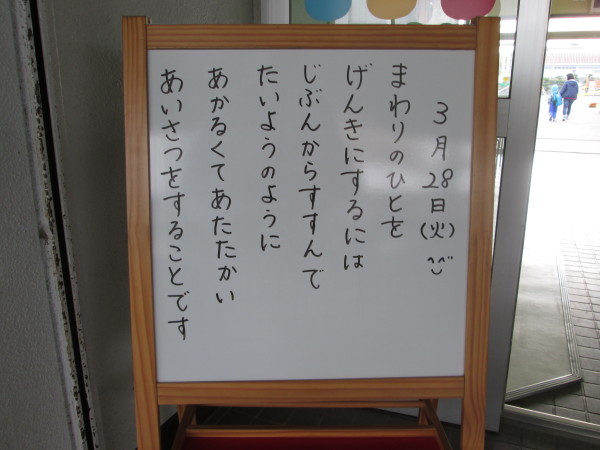 3月28日(火)
まわりのひとを
げんきにするには
じぶんからすすんで
たいようのように
あかるくてあたたかい
あいさつをすることです